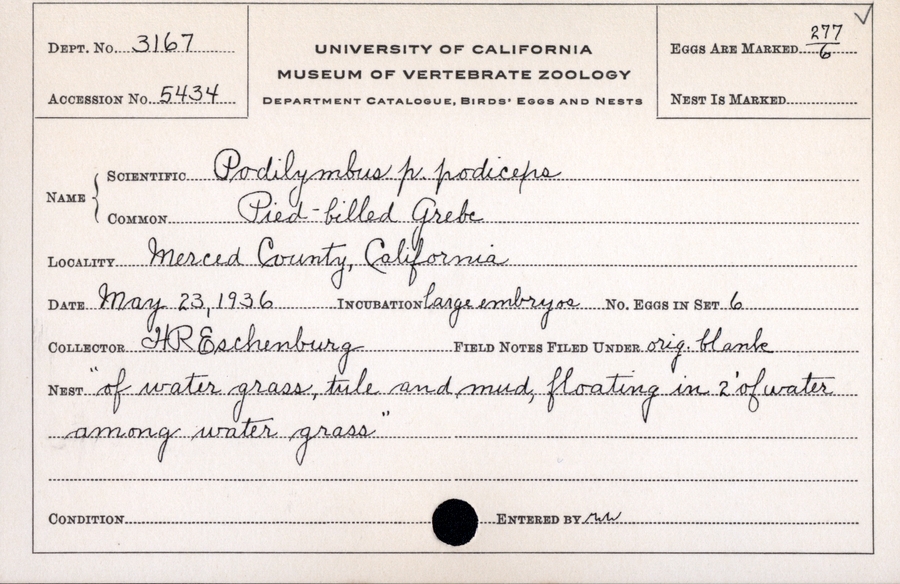 Dept. No. 3167
Accession No. 5434
UNIVERSITY OF CALIFORNIA
MUSEUM OF VERTEBRATE ZOOLOGY
Department Catalogue, Birds' Eggs and Nests
Eggs Are Marked 277/6
Nest Is Marked
Name
Scientific Podilymbus p. podiceps
Common Pied-billed Grebe
Locality Merced County, California
Date May 23, 1936 Incubation large embryos No. Eggs in Set 6
Collector HREschenburg Field Notes Filed Under orig. blank
Nest "of water grass, tule and mud, floating in 2' of water
among water grass"
Condition Entered by